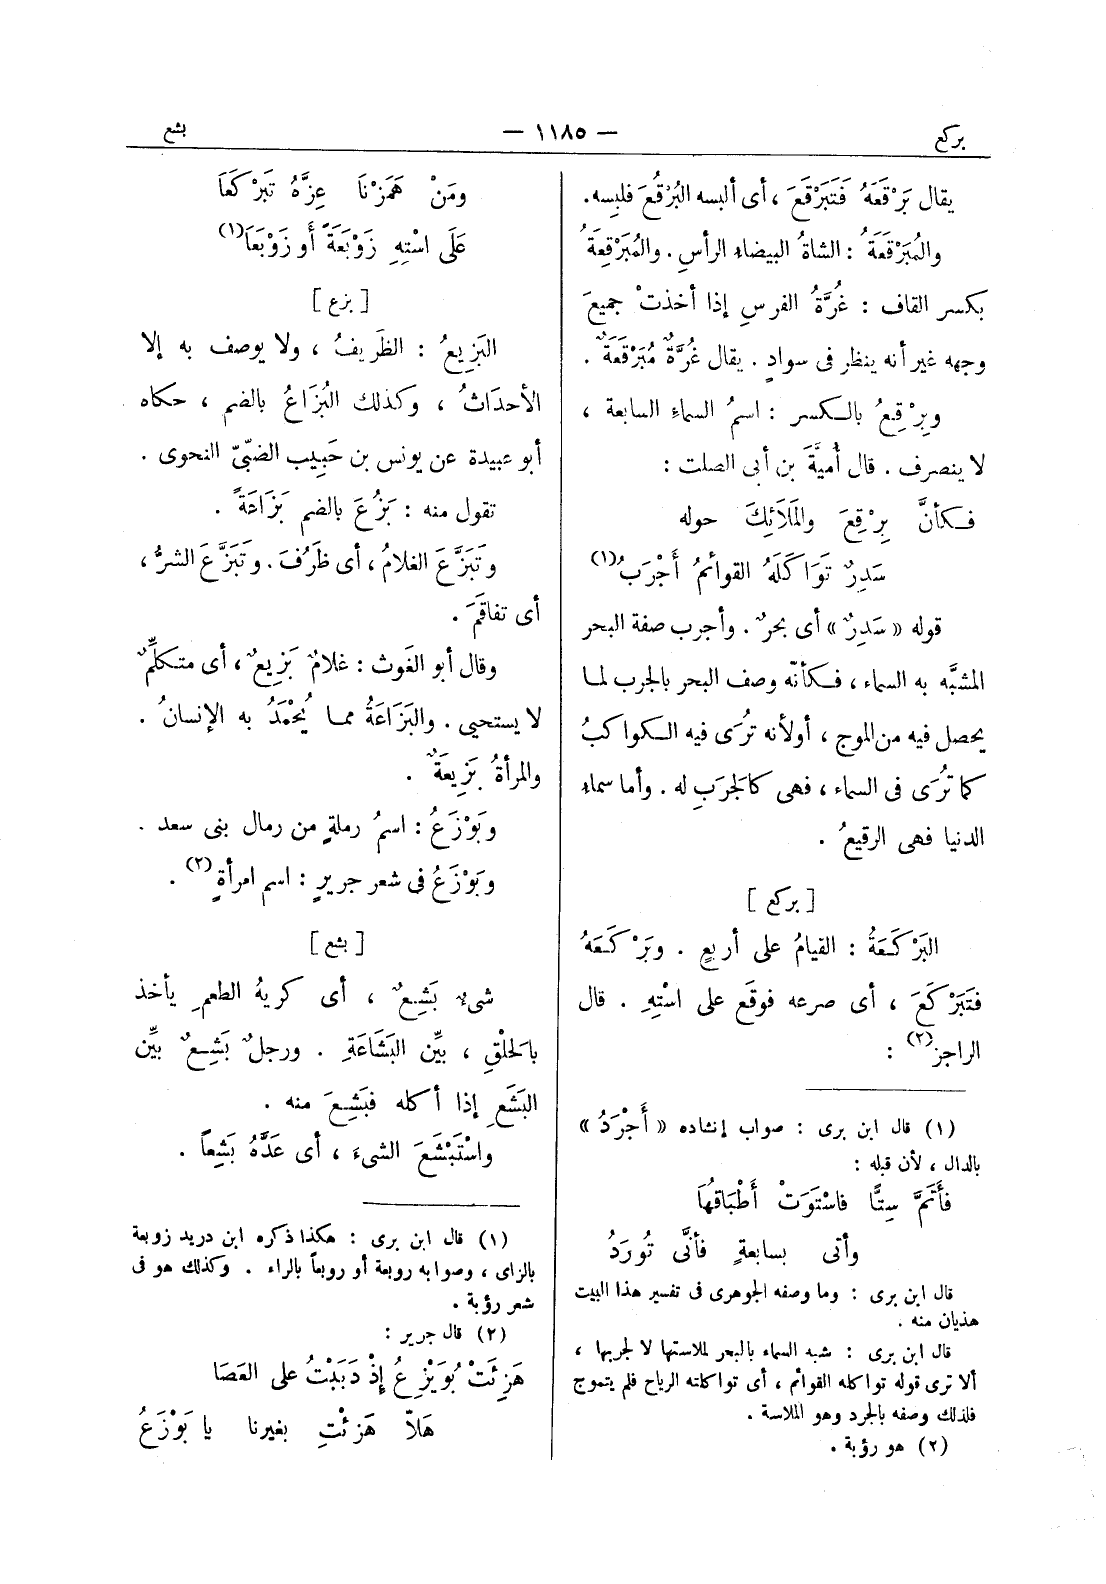 بركع
— ١١٨٥ —
بشع
يقال بَرْقَعَهُ فَتَبَرْقَعَ ، أى ألبسه البُرْقُعَ فلبِسه.
والمُبَرْقَعَةُ : الشاةُ البيضاء الرأسِ . والمُبَرْقِعَةُ
بكسر القاف : غُرَّةُ الفرسِ إذا أخذتْ جميعَ
وجهه غير أنه ينظر فى سوادٍ . يقال غُرَّةٌ مُبَرْقَعَةٌ .
وبِرْقِعُ بالكسر : اسمُ السماءِ السابعة ،
لا ينصرف . قال أُميَّةَ بن أبى الصلت :
فكأنَّ بِرْقِعَ والمَلَائِكَ حوله
سَدِرٌ تَوَاكَلَهُ القوائمُ أَجْرَبُ(١)
قوله « سَدِرٌ » أى بحرٌ . وأجرب صفة البحر
المشبَّه به السماء ، فكأنّه وصف البحر بالجرب لما
يحصل فيه من الموج ، أولأنه تُرَى فيه الكواكبُ
كما تُرَى فى السماء ، فهى كالجرَبِ له . وأما سماء
الدنيا فهى الرقيعُ .
[ بركع ]
البَرْكَعَةُ : القيامُ على أربعٍ . وبَرْكَعَهُ
فتَبَرْكَعَ ، أى صرعه فوقَع على اسْتِهِ . قال
الراجز(٢) :
(١) قال ابن برى : صواب إنشاده « أَجْرَدُ »
بالدال ، لأن قبله :
فأَتَمَّ سِتًّا فاسْتَوَتْ أَطْبَاقُهَا
وأتى بسابعةٍ فأنَّى تُورَدُ
قال ابن برى : وما وصفه الجوهرى فى تفسير هذا البيت
هذيان منه .
قال ابن برى : شبه السماء بالبحر لملاستها لا لجربها ،
ألا ترى قوله تواكله القوائم ، أى تواكلته الرياح فلم يتموج
فلذلك وصفه بالجرد وهو الملاسة .
(٢) هو رؤبة .
ومَنْ هَمَزْنَا عِزَّهُ تَبَرْكَعَا
عَلَى اسْتِهِ زَوْبَعَةً أو زَوْبَعَا(١)
[ بزع ]
البَزِيعُ : الظَرِيفُ ، ولا يوصف به إلا
الأحدَاثُ ، وكذلك البُزَاعُ بالضم ، حكاه
أبو عبيدة عن يونس بن حَبِيب الضبّىّ النحوى .
تقول منه : بَزُعَ بالضم بَزَاعَةً .
وتَبَزَّعَ الغلامُ ، أى ظَرُفَ . وتَبَزَّعَ الشرُّ ،
أى تفاقَمَ .
وقال أبو الغوث : غلامٌ بَزِيعٌ ، أى متكلِّمٌ
لا يستحيى . والبَزَاعَةُ مما يُحْمَدُ به الإنسانُ .
والمرأةُ بَزِيعَةٌ .
وبَوْزَعُ : اسمُ رملةٍ من رمال بنى سعد .
وبَوْزَعُ فى شعر جريرٍ : اسم امرأةٍ(٢) .
[ بشع ]
شىءٌ بَشِعٌ ، أى كريهُ الطعمِ يأخذ
بالحلْقِ ، بيِّن البَشَاعَةِ . ورجلٌ بَشِعٌ بيِّن
البَشَعِ إذا أكله فبَشِعَ منه .
واسْتَبْشَعَ الشىءَ ، أى عَدَّهُ بَشِعاً .
(١) قال ابن برى : هكذا ذكره ابن دريد زوبعة
بالزاى ، وصوابه روبعة أو روبعاً بالراء . وكذلك هو فى
شعر رؤبة .
(٢) قال جرير :
هَزِئَتْ بُوَيْزِعُ إذْ دَبَبْتُ على العَصَا
هَلّا هَزِئْتِ بغيرنا يا بَوْزَعُ